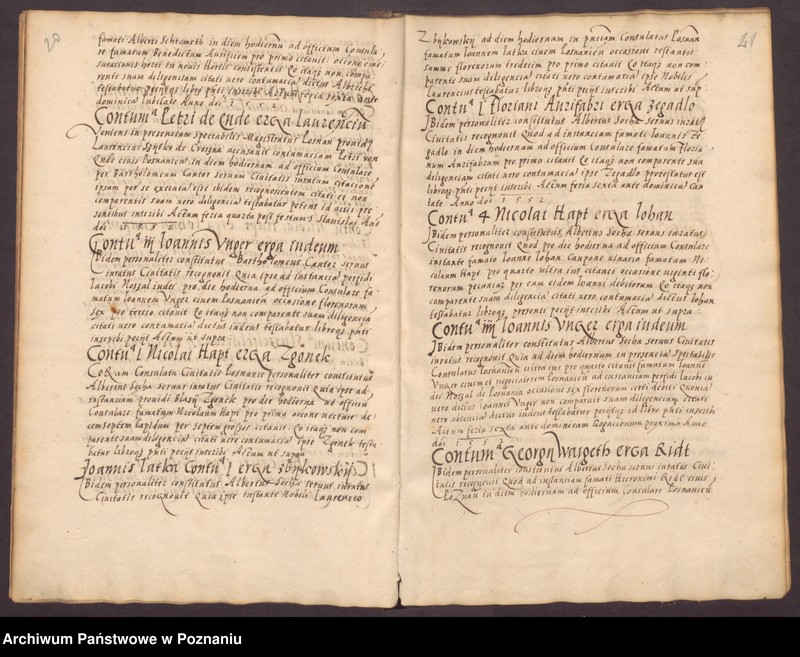 famati Alberti Schrameth in diem hodiernu ad officium Consula
re famatum Benedictum Aurifficem pro primo citavit: occone eme
parente suam diligenciam citati vero contumacia dictus Albertus
testabatur petens librо pnti inscribi Actum feria sexta ante
dominica Iubilate Anno dni 1552
Contum Petri de Ende erga Laurenciu
Veniens in presenciam Spectabilis Magistratus Posnan provid
Laurencius Spytko de Crosna accusavit contumaciam Petri von
Ende civis Posnaniens in diem hodiernam ad officium Consulare
per Bartholomeum Cantor servum Civitatis iuratum citacione
ipsam per se executa est ibidem recognoscentem citati et non
comparentis suam vero diligencia testabatur petens id actis pre
sentibus inscribi Actum feria quarta post festum S Stanislai Ano
dni
Contu iii Ioannis Vnger erga iudeum
Ibidem personaliter constitutus Bartholomeus Cantor servus
iuratus Civitatis recognovit Quia ipse ad instancia perfidi
Iacobi Nossal iudei pro die hodierna ad officium Consulare fa
matum Ioannem Vnger civem Posnanien occasione florenorum
sex pro tercio citavit Co itaq non comparente suam diligencia
citati vero contumacia dictus iudeus testabatur libroq pnti
inscribi petit Actum ut supra
Contu I Nicolai Hapt erga Zgonek
Coram Consulatu Civitatis Posnanie personaliter constitutus
Albertus Socha servus iuratus Civitatis recognovit Quia ipse ad
instanciam providi Blasy Zgonek pro die hodierna ad officiu
Consulare famatum Nicolaum Hapt pro primo occone vecture de
cem septem lapidum per septem grossos citavit: Co itaq non com
parente suam diligencia citati vero contumacia ipse Zgonek testa
batur libroq pnti petit inscribi Actum ut supra
Ioannis Latka Contu I erga Zbykowskij
Ibidem personaliter constitutus Albertus Socha servus iuratus
Civitatis recognovit Quia ipse instante Nobili Laurencio
41
Zbykowskij ad diem hodiernam in pnciam Consulatus Posnan
famatum Ioannem Latka civem Posnanien occasione restantis
summe florenorum tredecim pro primo citavit Co itaq non com
parente suam diligencia citati vero contumacia ipse Nobilis
Laurencius testabatur libroq pnti petit inscribi Actum ut sup
Contu I Floriani Aurifabri erga Zegadlo
Ibidem personaliter constitutus Albertus Socha servus iurat
Civitatis recognovit Quod ad instanciam famati Ioannis Ze
gadlo in diem hodiernam ad officium Consulare famatum Floria
num Aurifabrum pro primo citavit Co itaq non comparente sua
diligenciam citati vero contumacia ipse Zegadlo protestatus est
libroq pnti petit inscribi Actum feria sexta ante dominica Can
tate Anno dni 1552
Contu 4 Nicolai Hapt erga Iohan
Ibidem personaliter constitutus Albertus Socha servus iuratus
Civitatis recognovit Quod pro die hodierna ad officium Consulare
instante famato Ioanne Iohan Caupone vinario famatum Ni
colaum Hapt pro quarto ultra ius citavit occasione viginti flo
renorum pecunia per eum eidem Ioanni debitorum Co itaq non
comparente suam diligencia citati vero contumacia dictus Iohan
testabatur libroq presenti petit inscribi Actum ut supra
Contu iiii Ioannis Vnger erga iudeum
Ibidem personaliter constitutus Albertus Socha servus Civitatis
iuratus recognovit Quia ad diem hodiernum in presencia Spectabilis
Consulatus Posnanien ultra ius pro quarto citavit famatum Ioanne
Vnger civem et negociatorem Posnanien ad instanciam perfidi Iacobi iu
dei Nossal de Posnania occasione sex florenorum certi debiti Quoniam
vero dictus Ioannes Vnger non comparuit suam diligenciam citati
vero absencia dictus iudeus testabatur petitus id libro pnti inscribi
Actum feria sexta ante dominicam Rogacionum proxima Anno
dni 1552
Contum Georgy Waigeth erga Ridt
Ibidem personaliter constitutus Albertus Socha servus iuratus Civi
tatis recognovit Quod ad instanciam famati Hieronimi Ridt civis
Poznan in diem hodiernam ad officium Consulare Posnanien
Archiwum Państwowe w Poznaniu